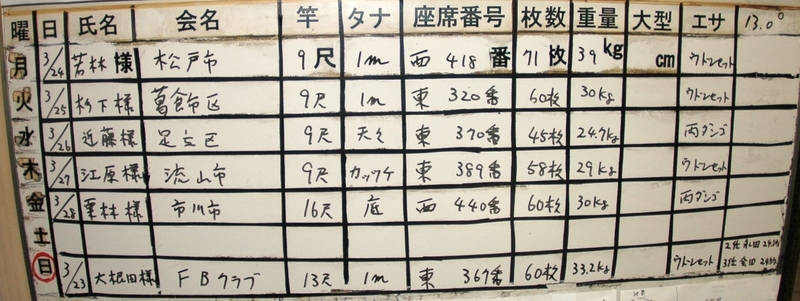 曜 日 氏名 会名 竿 タナ 座席番号 枚数 重量 大型 エサ 13.0°
月 3/24 若林様 松戸市 9尺 1m 西 418番 71枚 39kg cm ウドンセット
火 3/25 杉下様 葛飾市区 9尺 1m 東 320番 60枚 30kg ウドンセット
水 3/26 近藤様 足立区 9尺 天々 東 370番 45枚 24.7kg 両ダンゴ
木 3/27 江原様 流山市 9尺 カッツケ 東 389番 58枚 29kg ウドンセット
金 3/28 栗林様 市川市 16尺 底 西 440番 60枚 30kg 両ダンゴ
土
日 3/23 大根田様 FBクラブ 13尺 1m 東 367番 60枚 33.2kg ウドンセット